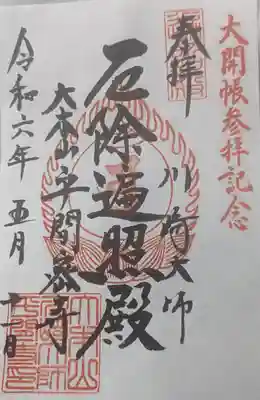 大開帳参拝記念
奉拝
川崎大師
厄除遍照殿
大本山平間寺
令和六年五月十一日